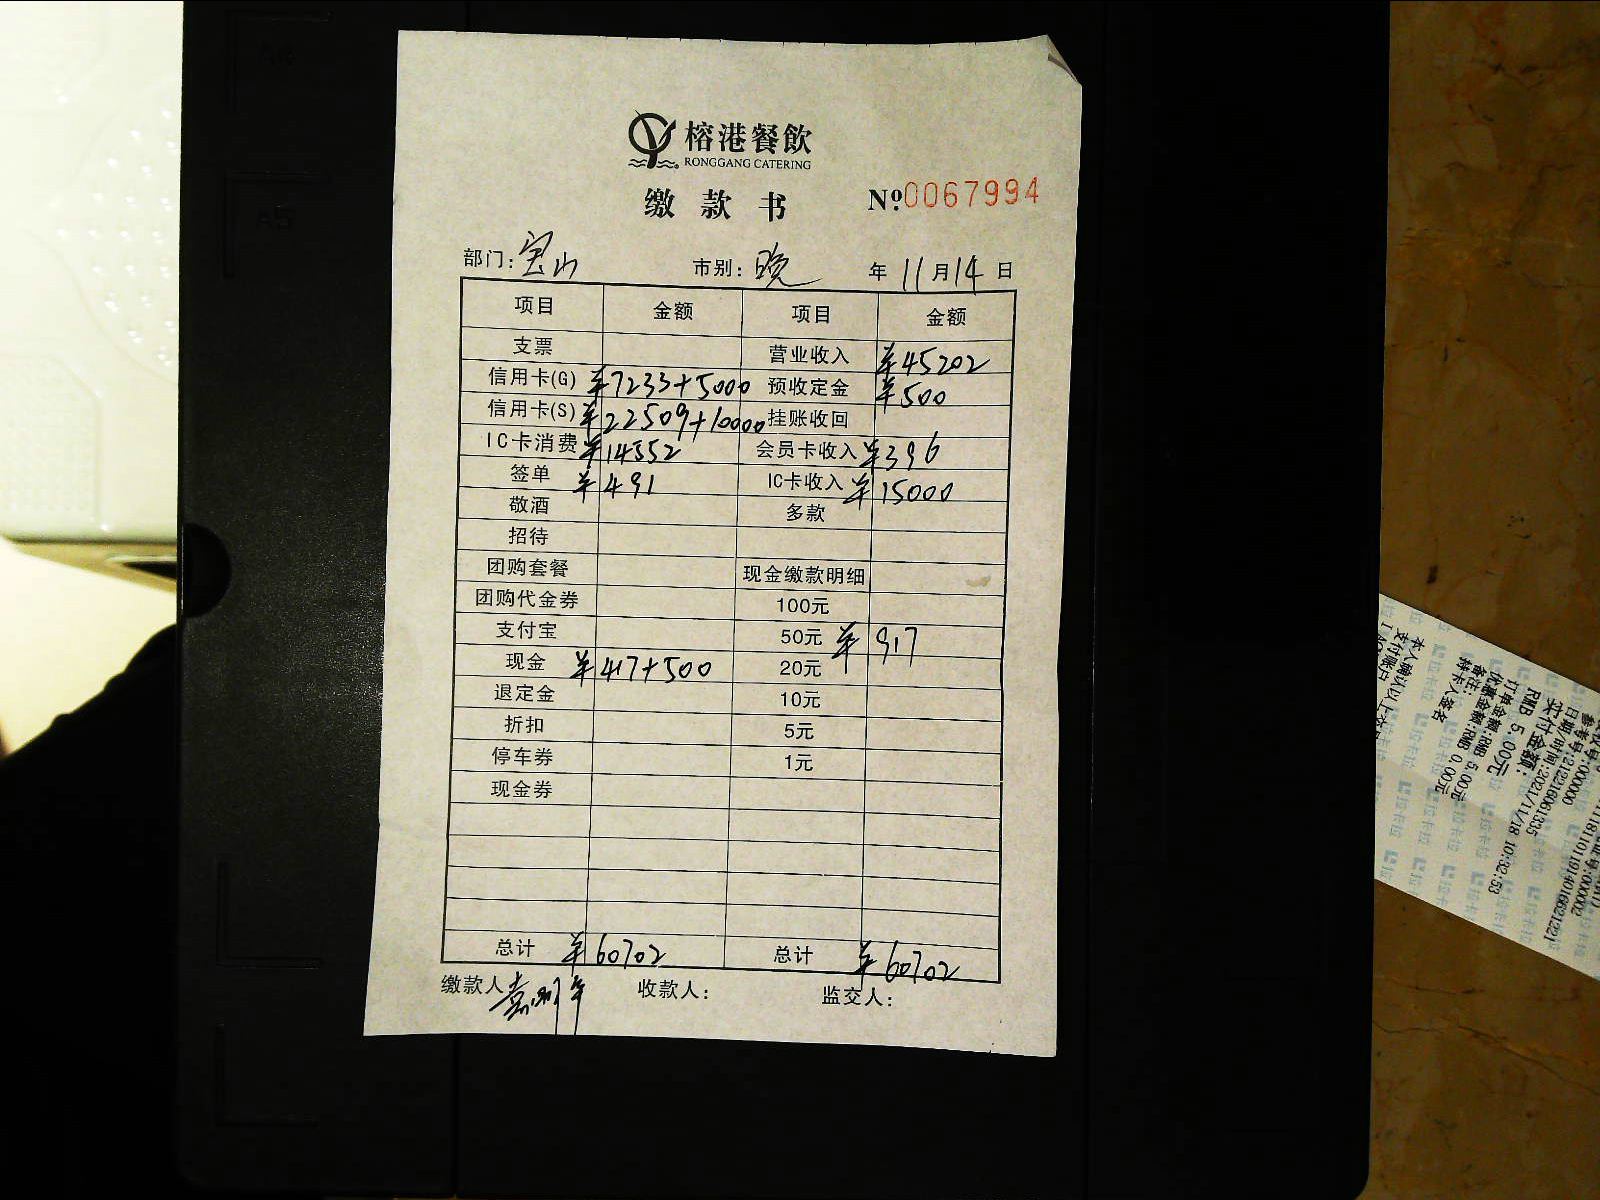 榕港餐飲
RONGGANG CATERING
缴款书 №:0067994
部门:宝山 市别:晚 年11月14日
项目 金额 项目 金额
支票 营业收入 ¥45202
信用卡(G) ¥7233+5000 预收定金 ¥500
信用卡(S) ¥22509+10000 挂账收回
IC卡消费 ¥14552 会员卡收入 ¥396
签单 ¥491 IC卡收入 ¥15000
敬酒 多款
招待
团购套餐 现金缴款明细
团购代金券 100元
支付宝 50元 ¥917
现金 ¥417+500 20元
退定金 10元
折扣 5元
停车券 1元
现金券
总计 ¥60702 总计 ¥60702
缴款人 收款人: 监交人:
A5
参考号:212216061335
日期/时间:2021/11/18 10:32:53
实付金额:
RMB 5.00元
订单金额:RMB 5.00元
优惠金额:RMB 0.00元
备注:
持卡人签名
本人确认以上交